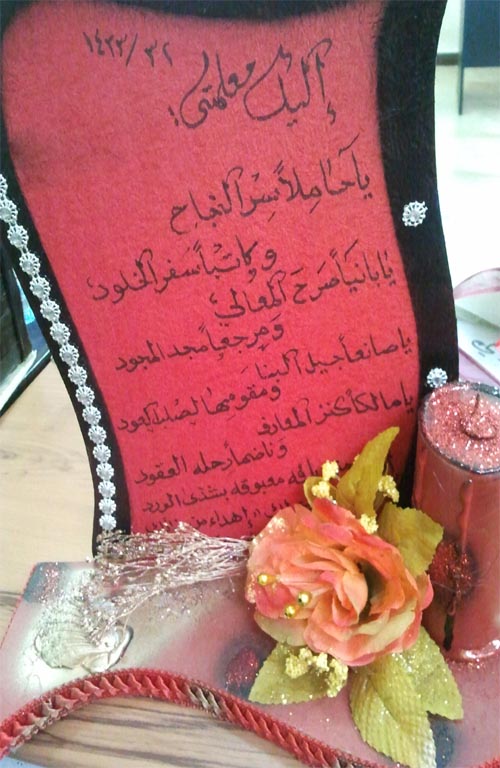 ١٤٣٣/٣٢
إليكِ معلمتي:
يا حاملاً سر النجاح
وكاتباً سفر الخلود
يا بانياً صرح المعالي
ومرجعاً مجد الجدود
يا صانعاً جيل البنا
ومقومها لصلب العود
يا مالكاً كنز المعارف
وناضماً رحله العقود
معبوقه بشذى الورد
إهداء من